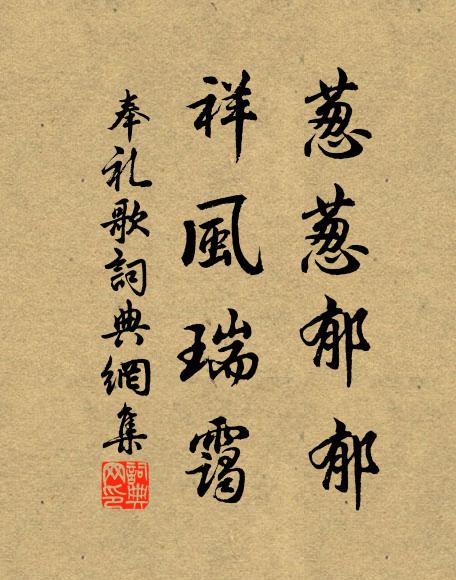 葱葱郁郁
祥風瑞靄
奉礼歌詞典網集
詞典网印